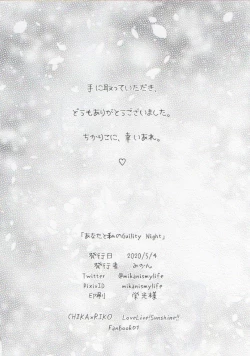 手に取っていただき、
どうもありがとうございました。
ちかりこに、幸いあれ。
♡
「あなたと私のGuilty Night」
発行日 2020/5/4
発行者 みかん
Twitter @mikanismylife
PixivID mikanismylife
印刷 栄光様
CHIKA×RIKO LoveLive!Sunshine!!
Fanbook07